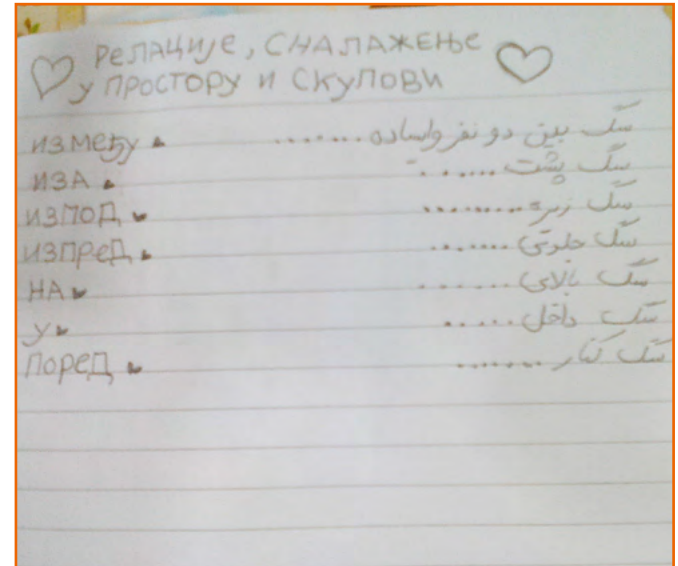 РЕЛАЦИЈЕ, СНАЛАЖЕЊЕ
У ПРОСТОРУ И СКУПОВИ
ИЗМЕЂУ سگ بین دو نفر واساده.......
ИЗА سگ پشت......
ИЗПОД سگ زیر.........
ИЗПРЕД سگ جلوی.......
НА سگ بالای.......
У سگ داخل......
ПОРЕД سگ کنار........